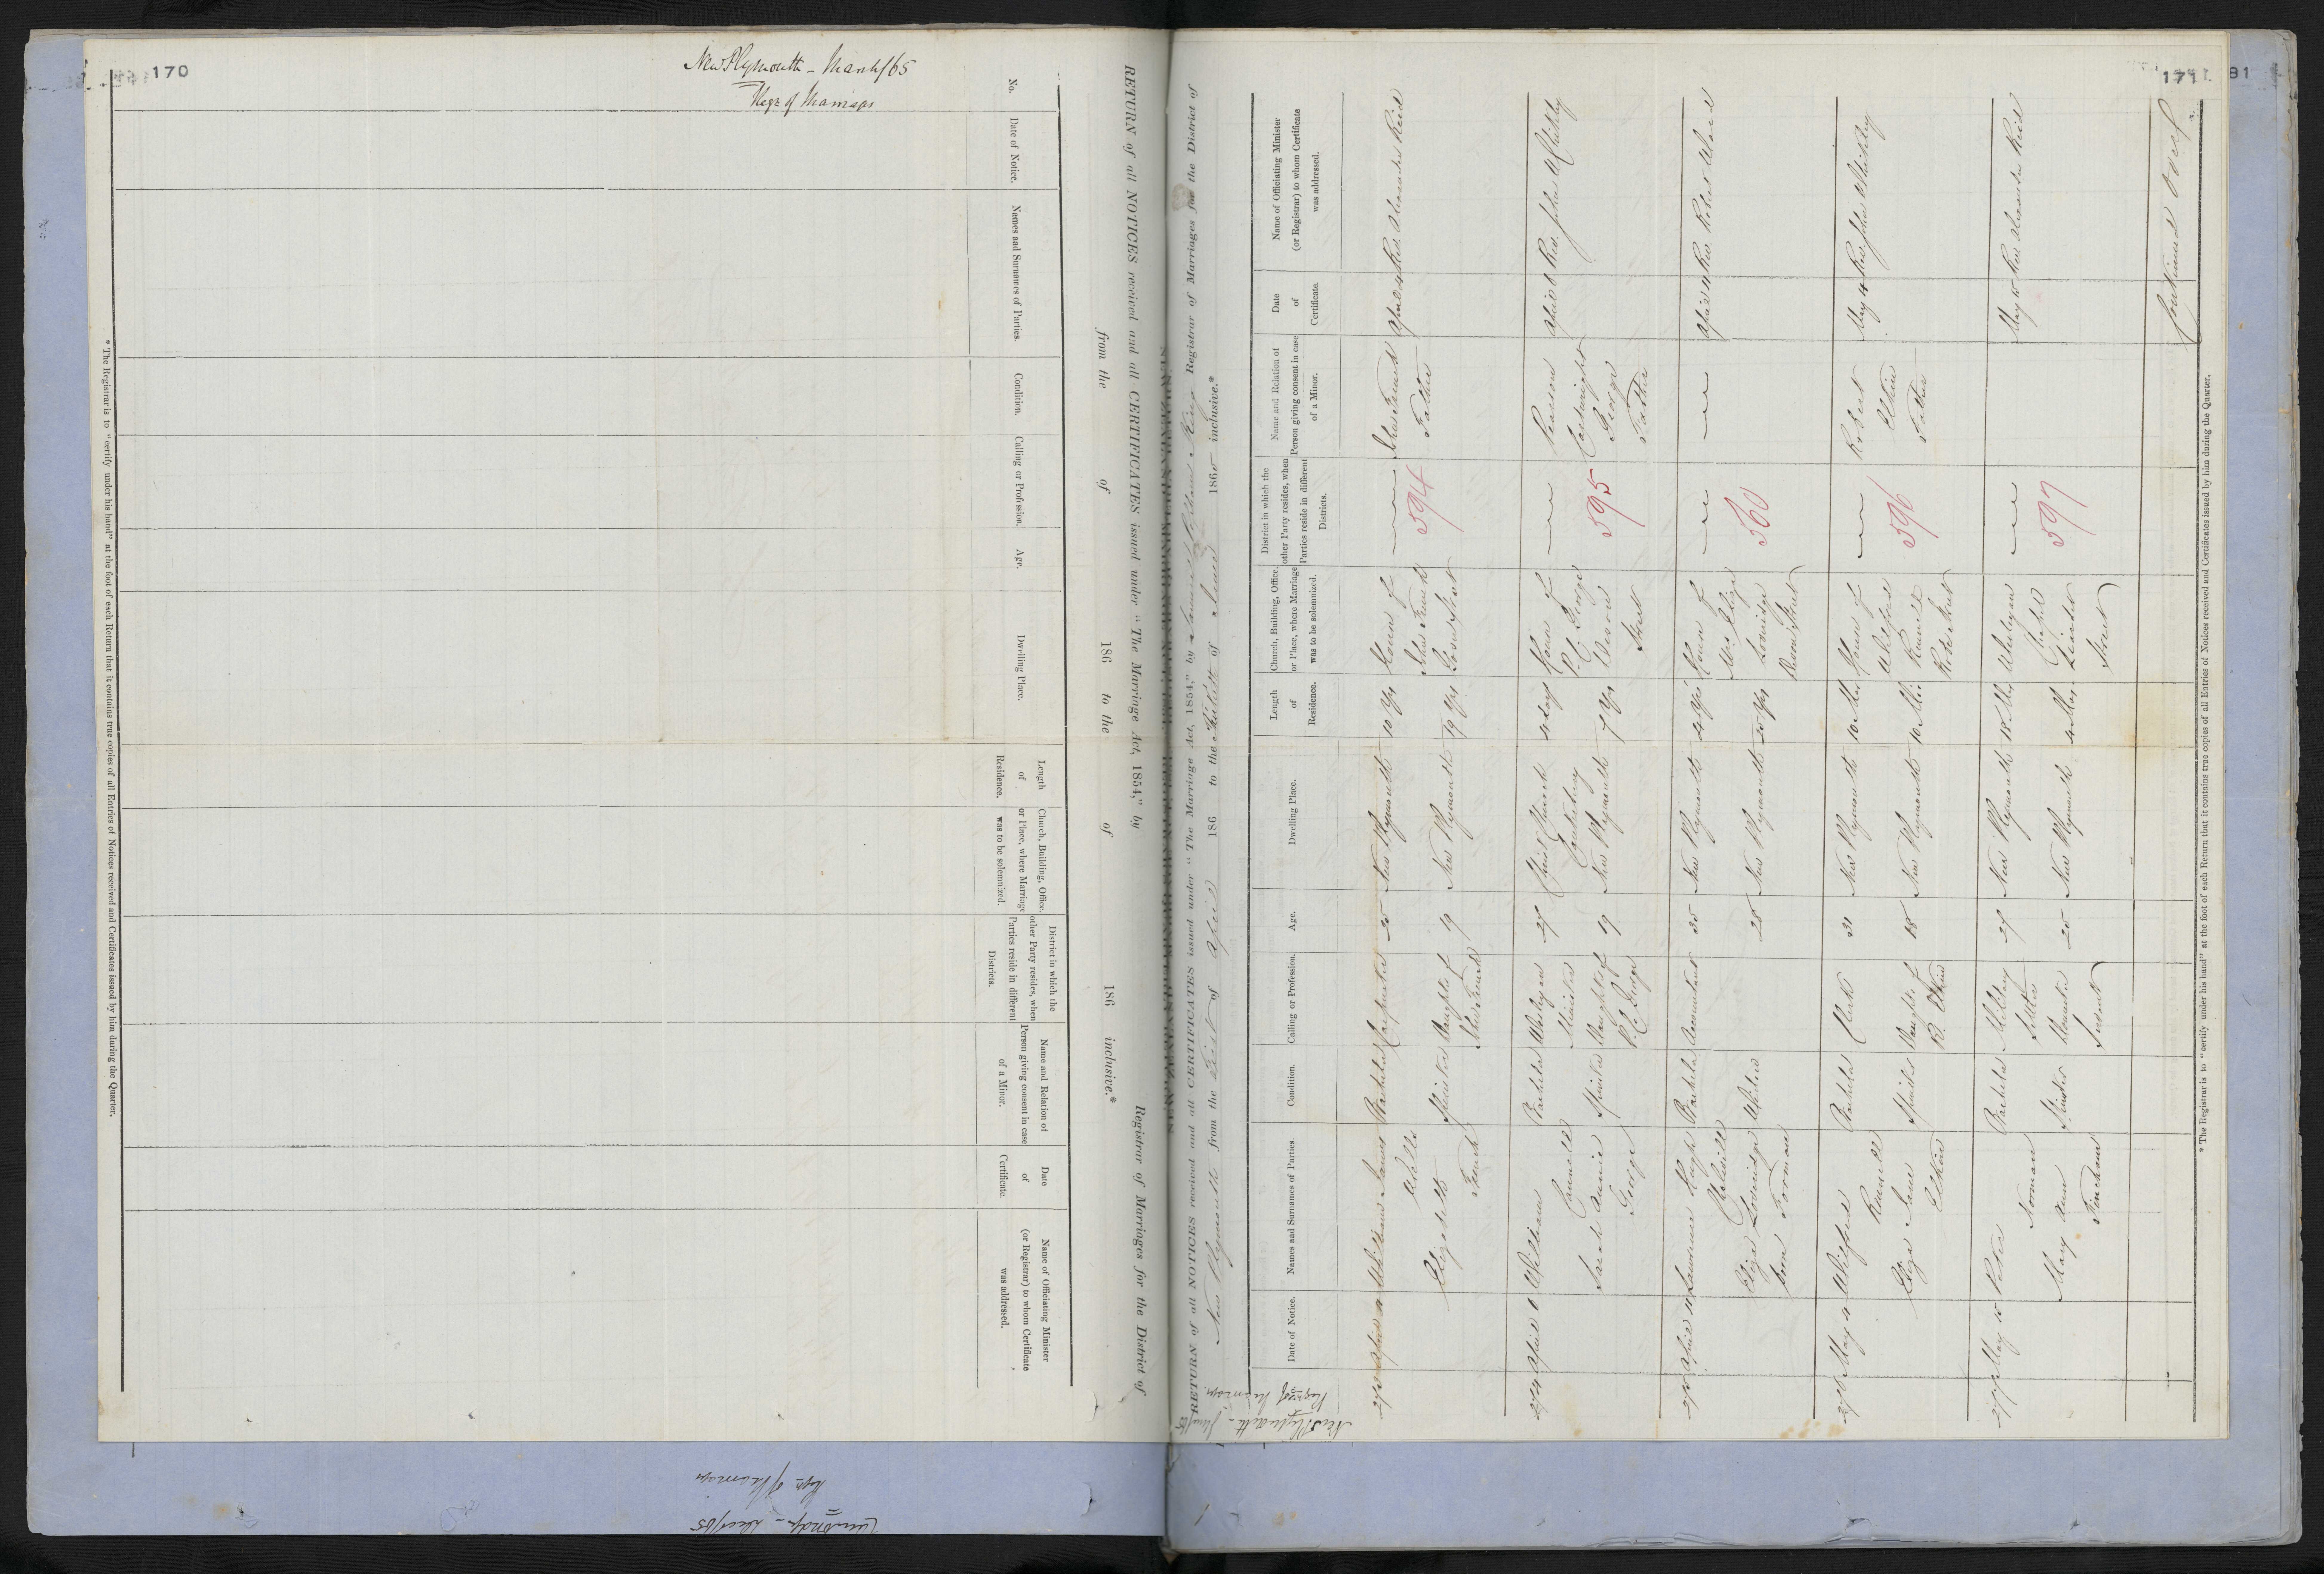 170
New Plymouth - March/65
Regr of Marriages
RETURN of all NOTICES received and all CERTIFICATES issued under "The Marriage Act, 1854," by
Registrar of Marriages for the District of
from the of 186 to the of 186 inclusive.*
No.
Date of Notice.
Names and Surnames of Parties.
Condition.
Calling or Profession.
Age.
Dwelling Place.
Length
of
Residence.
Church, Building, Office.
or Place, where Marriage
was to be solemnized.
District in which the
other Party resides, when
Parties reside in different
Districts.
Name and Relation of
Person giving consent in case
of a Minor.
Date
of
Certificate.
Name of Officiating Minister
(or Registrar) to whom Certificate
was addressed.
* The Registrar is to "certify under his hand" at the foot of each Return that it contains true copies of all Entries of Notices received and Certificates issued by him during the Quarter.
171
81
New Plymouth - June/65
Regr of Marriages
RETURN of all NOTICES received and all CERTIFICATES issued under "The Marriage Act, 1854," by Registrar of Marriages for the District of
New Plymouth from the First of April 186 to the of 1865 inclusive.*
Date of Notice.
Names and Surnames of Parties.
Condition.
Calling or Profession.
Age.
Dwelling Place.
Length
of
Residence.
Church, Building, Office.
or Place, where Marriage
was to be solemnized.
District in which the
other Party resides, when
Parties reside in different
Districts.
Name and Relation of
Person giving consent in case
of a Minor.
Date
of
Certificate.
Name of Officiating Minister
(or Registrar) to whom Certificate
was addressed.
273 April 4 William James Bachelor Carpenter 25 New Plymouth 10 Yrs House of John French April 4 Rev. Alexander Reid
Wills
Father
Elizabeth Spinster Daughter of 19 New Plymouth 19 Yrs
French John French
594
274 April 8 William Bachelor Wesleyan 27 Christ Church 4 days House of April 8 Rev. John Whiteley
Cannell Minister Canterbury P. C. George
Sarah Annie Spinster Daughter of 19 New Plymouth 7 Yrs Devon George
George P. C. George Street Father
595
275 April 11 Laurence Bachelor Accountant 35 New Plymouth 4 Yrs House of April 11 Rev. Robert Ward
Mrs Eliza
Eliza Loveridge Widow 28 New Plymouth Loveridge
born Forman Devon Street
560
276 May 4 Wilfred Bachelor Clerk 31 New Plymouth 10 House of Robert May 4 Rev. John Whiteley
Wilfred
Eliza Jane Spinster Daughter of 18 New Plymouth 10 Father
596
277 May 15 Peter Bachelor Military 27 New Plymouth 18 Wesleyan May 15 Rev. Alexander Reid
Norman Settler Chapel
Mary Ann Spinster Domestic 25 New Plymouth
Fincham Servant Street
597
Continued over
* The Registrar is to "certify under his hand" at the foot of each Return that it contains true copies of all Entries of Notices received and Certificates issued by him during the Quarter.
Regr of Marriages